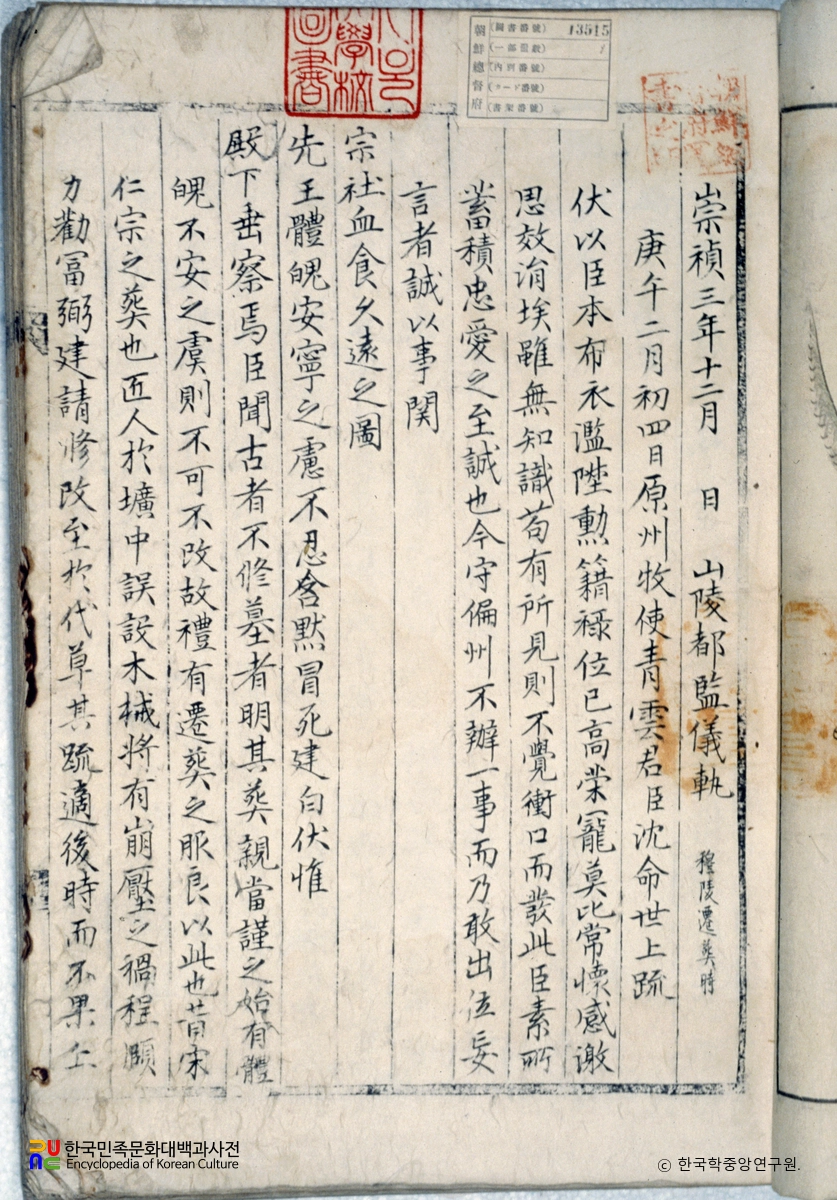 崇禎三年十二月 日 山陵都監儀軌 穆陵遷葬時
庚午二月初四日原州牧使青雲君臣沈命世上疏
伏以臣本布衣濫陞勳籍祿位已高荣寵莫比常懷感激
思效涓埃雖無知識苟有所見則不覺衝口而發此臣素所
蓄積忠愛之至誠也今守偏州不辦一事而乃敢出位妄
言者誠以事関
宗社血食久遠之圖
先王體魄安寧之慮不忍含默冒死建白伏惟
殿下垂察焉臣聞古者不修墓者明其葬親當謹之始有體
魄不安之虞則不可不改故禮有遷葬之服良以此也昔宋
仁宗之葬也匠人於壙中誤設木械將有崩壓之禍程顥
力勸冨弼建請修改至於代草其疏適後時而不果上
朝鮮總督府
(圖書番號) 13515
(一部冊數) 1
(內列番號)
(コード番號)
(書架番號)
한국민족문화대백과사전
Encyclopedia of Korean Culture
© 한국학중앙연구원.